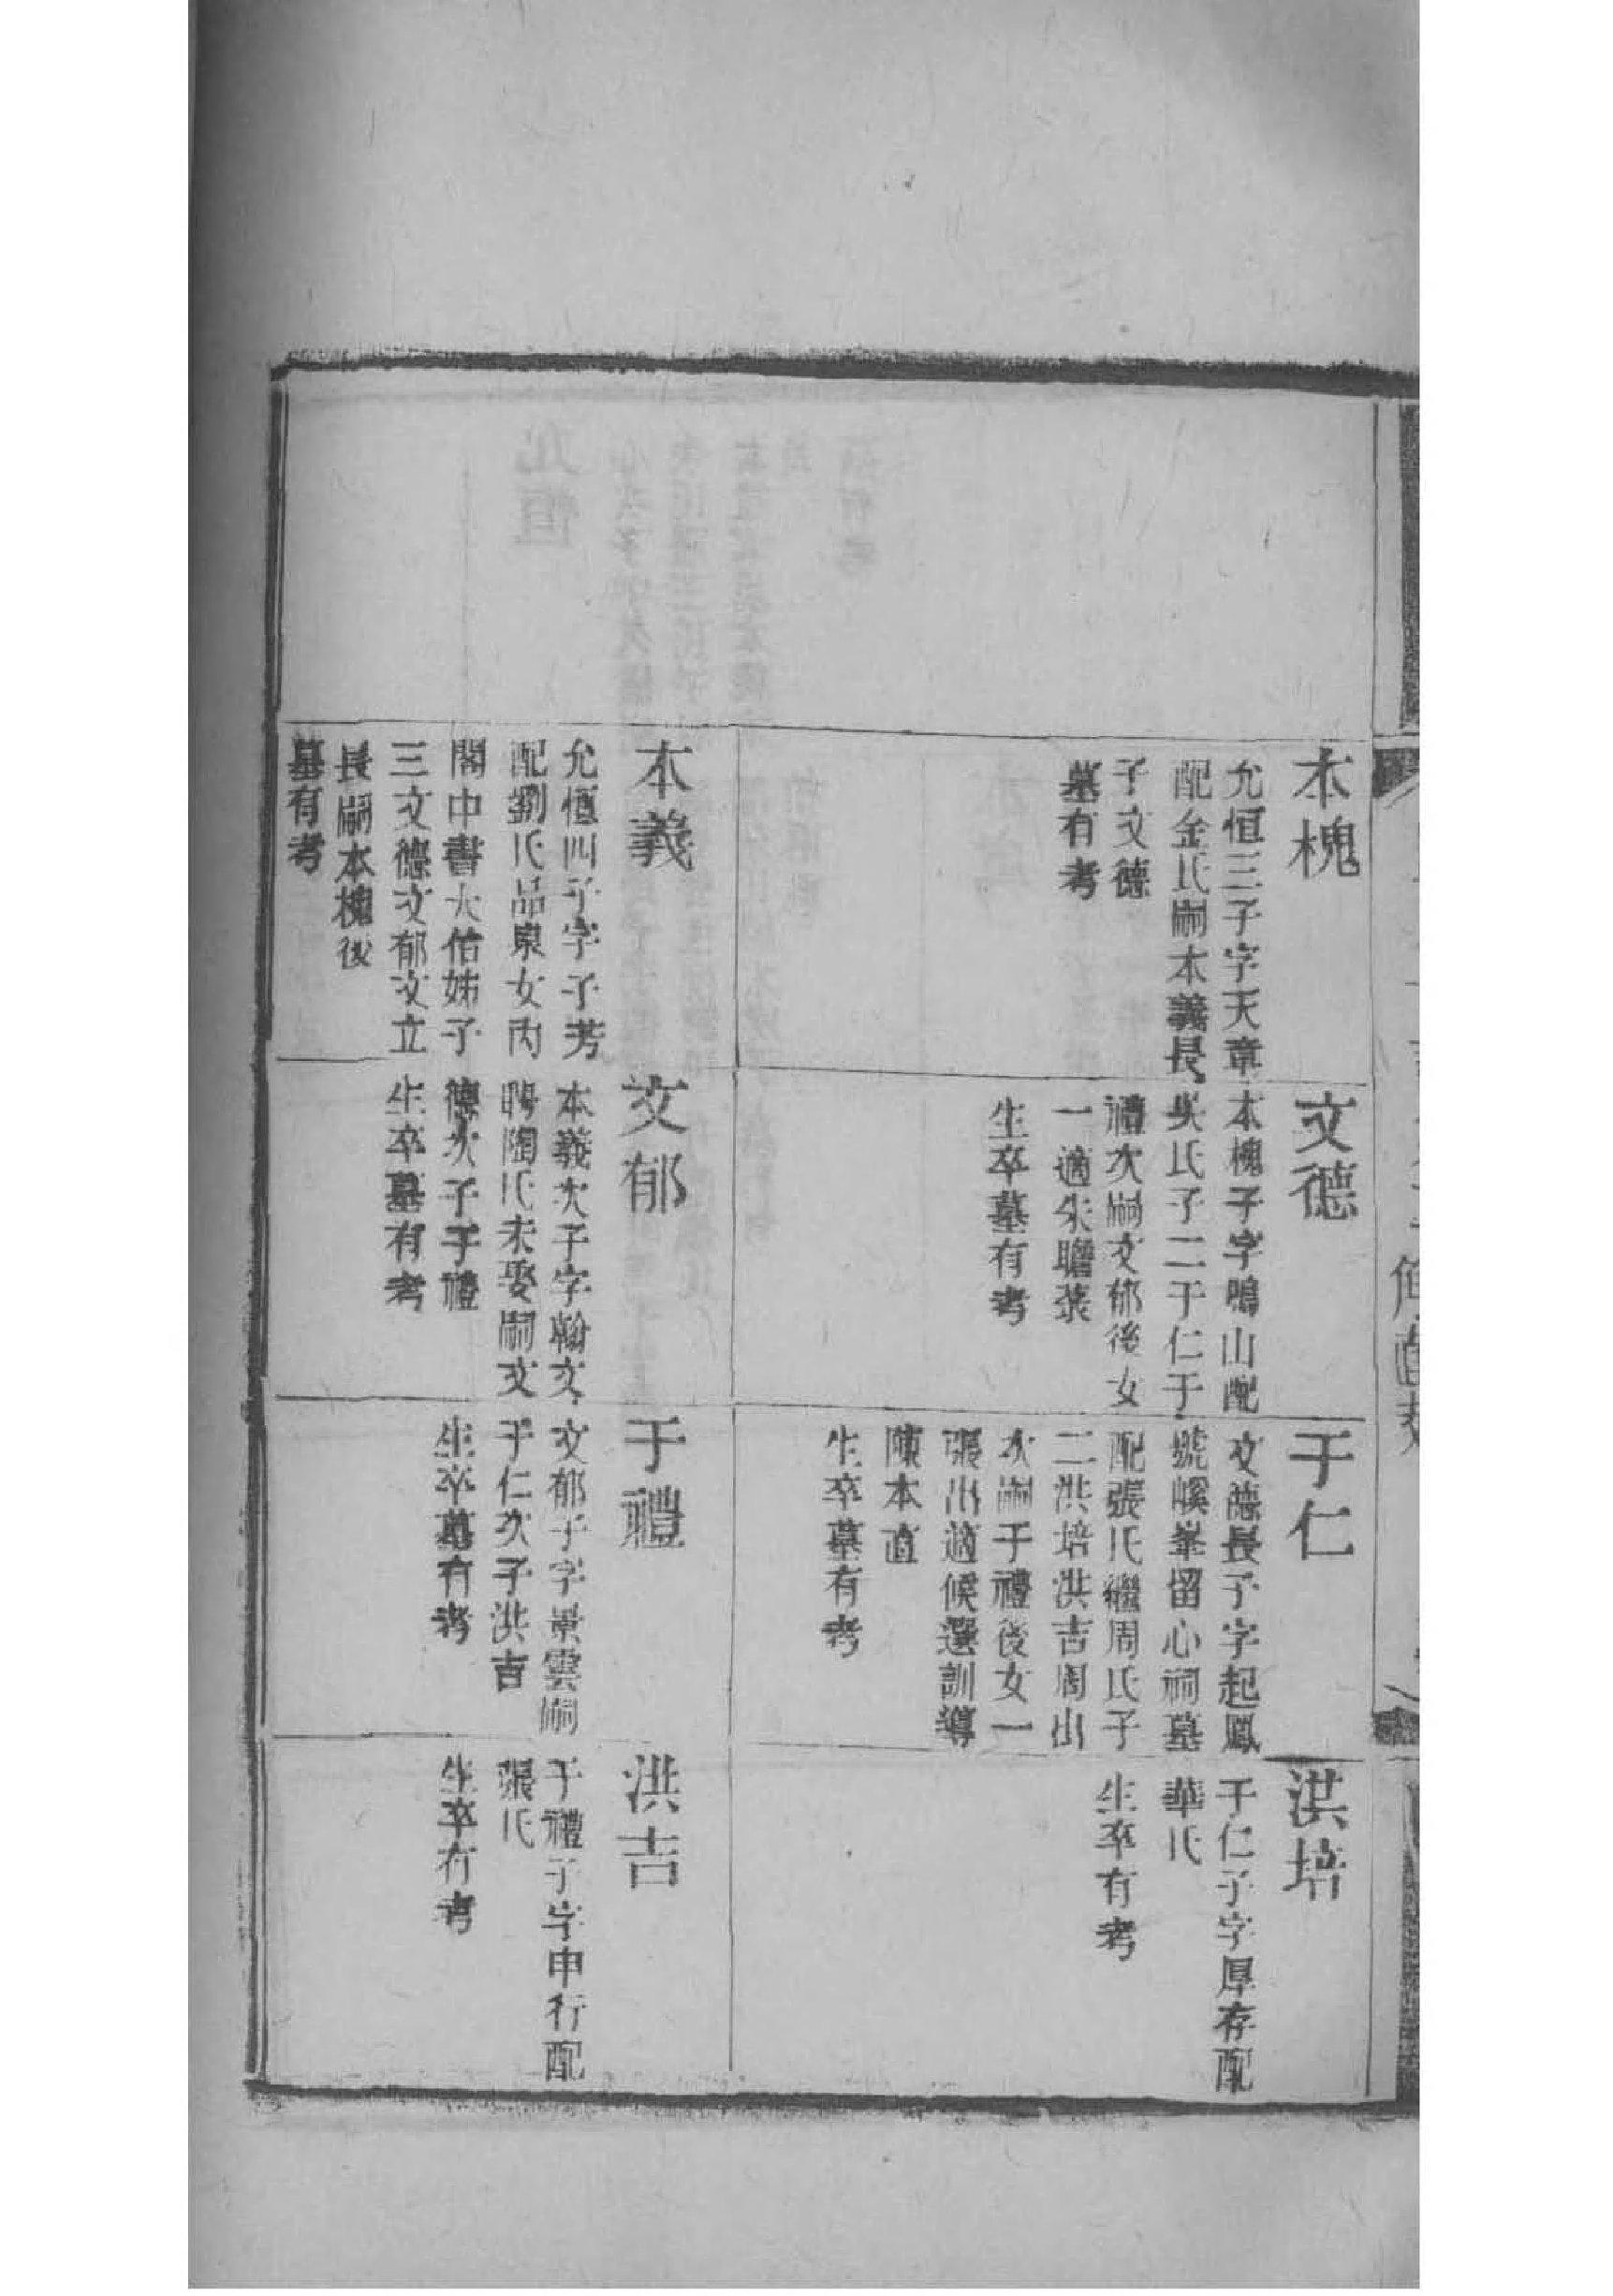 本槐
允恒三子字天章
配金氏嗣本義長
子文德
墓有考
文德
本槐子字鳴山配
吳氏子二于仁于
禮次嗣文郁後女
一適朱聸裴
生卒墓有考
于仁
文德長子字起鳳
號嵠峯留心祠墓
配張氏繼周氏子
二洪培洪吉周出
次嗣于禮後女一
張出適候選訓導
陳本直
生卒墓有考
洪培
于仁子字厚存配
華氏
生卒有考
本義
允恒四子字子芳
配劉氏品泉女內
閣中書大佑姊子
三文德文郁文立
長嗣本槐後
墓有考
文郁
本義次子字翰文
聘陶氏未娶嗣文
德次子于禮
生卒墓有考
于禮
文郁子字景雲嗣
于仁次子洪吉
生卒墓有考
洪吉
于禮子字申行配
張氏
生卒有考